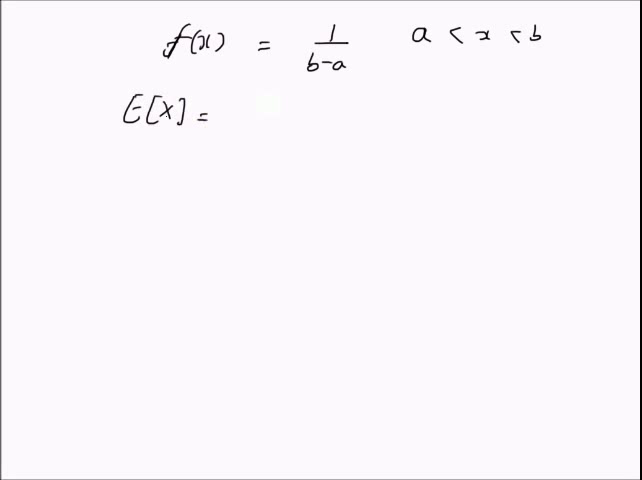 f(x) = 1/(b-a) a < x < b
E[X] =